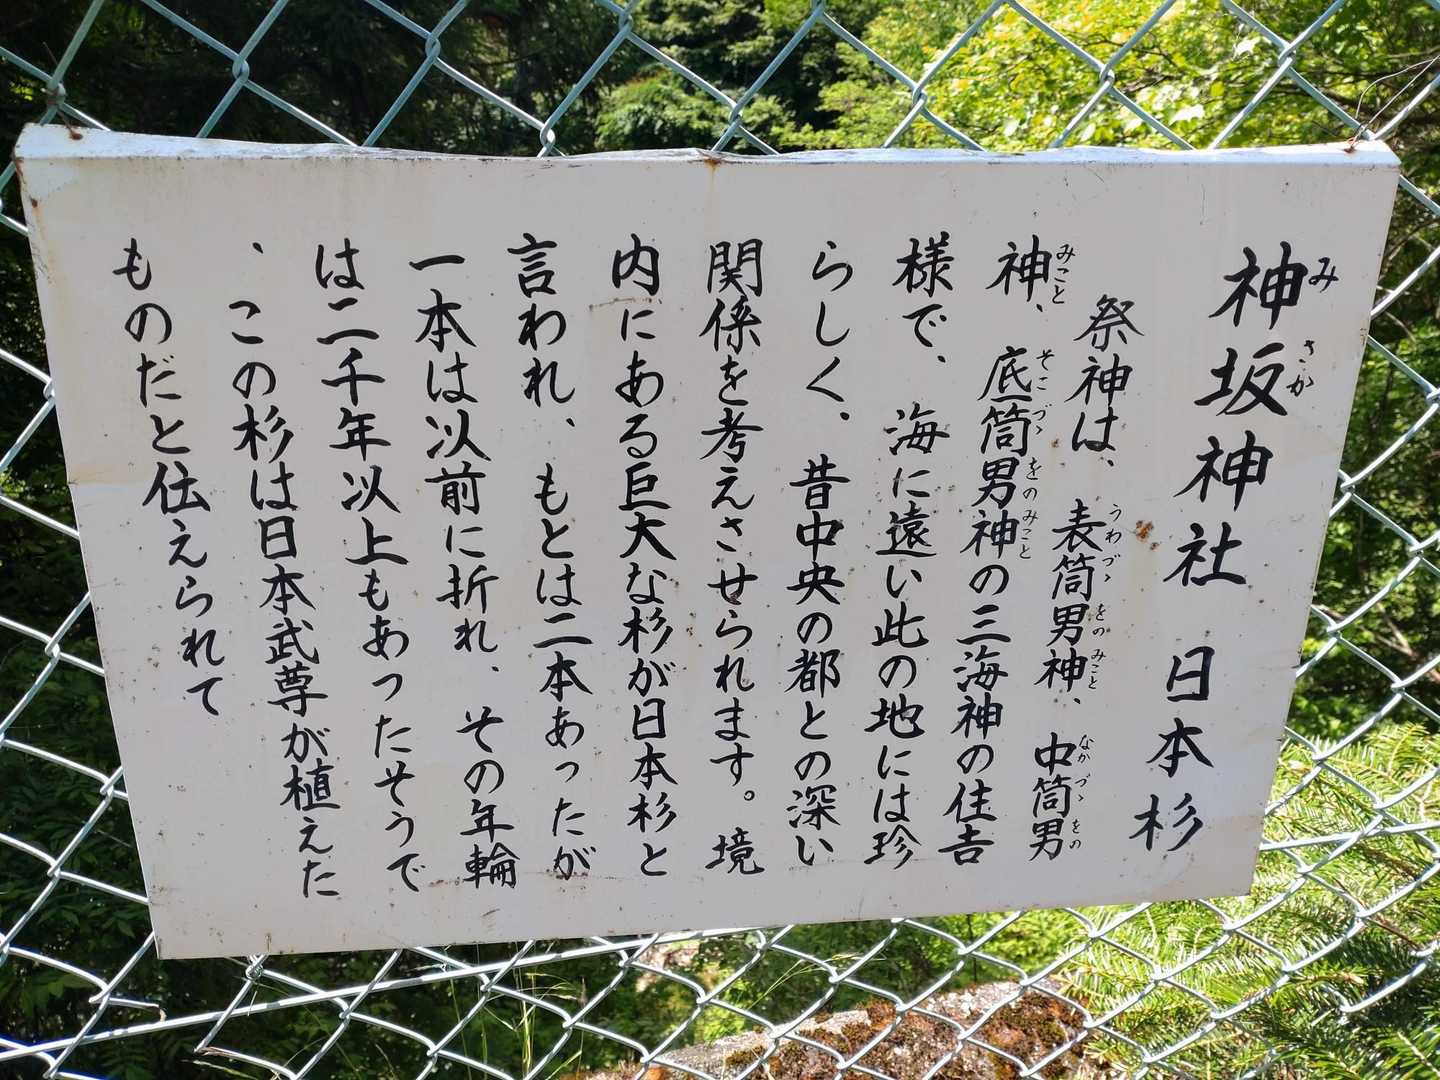 神坂神社 日本杉
祭神は、表筒男神、中筒男
神、底筒男神の三海神の住吉
様で、海に遠い此の地には珍
らしく、昔中央の都との深い
関係を考えさせられます。境
内にある巨大な杉が日本杉と
言われ、もとは二本あったが
一本は以前に折れ、その年輪
は二千年以上もあったそうで
、この杉は日本武尊が植えた
ものだと伝えられて
み
さか
うわづゝをのみこと
なかづゝをの
みこと
そこづゝをのみこと